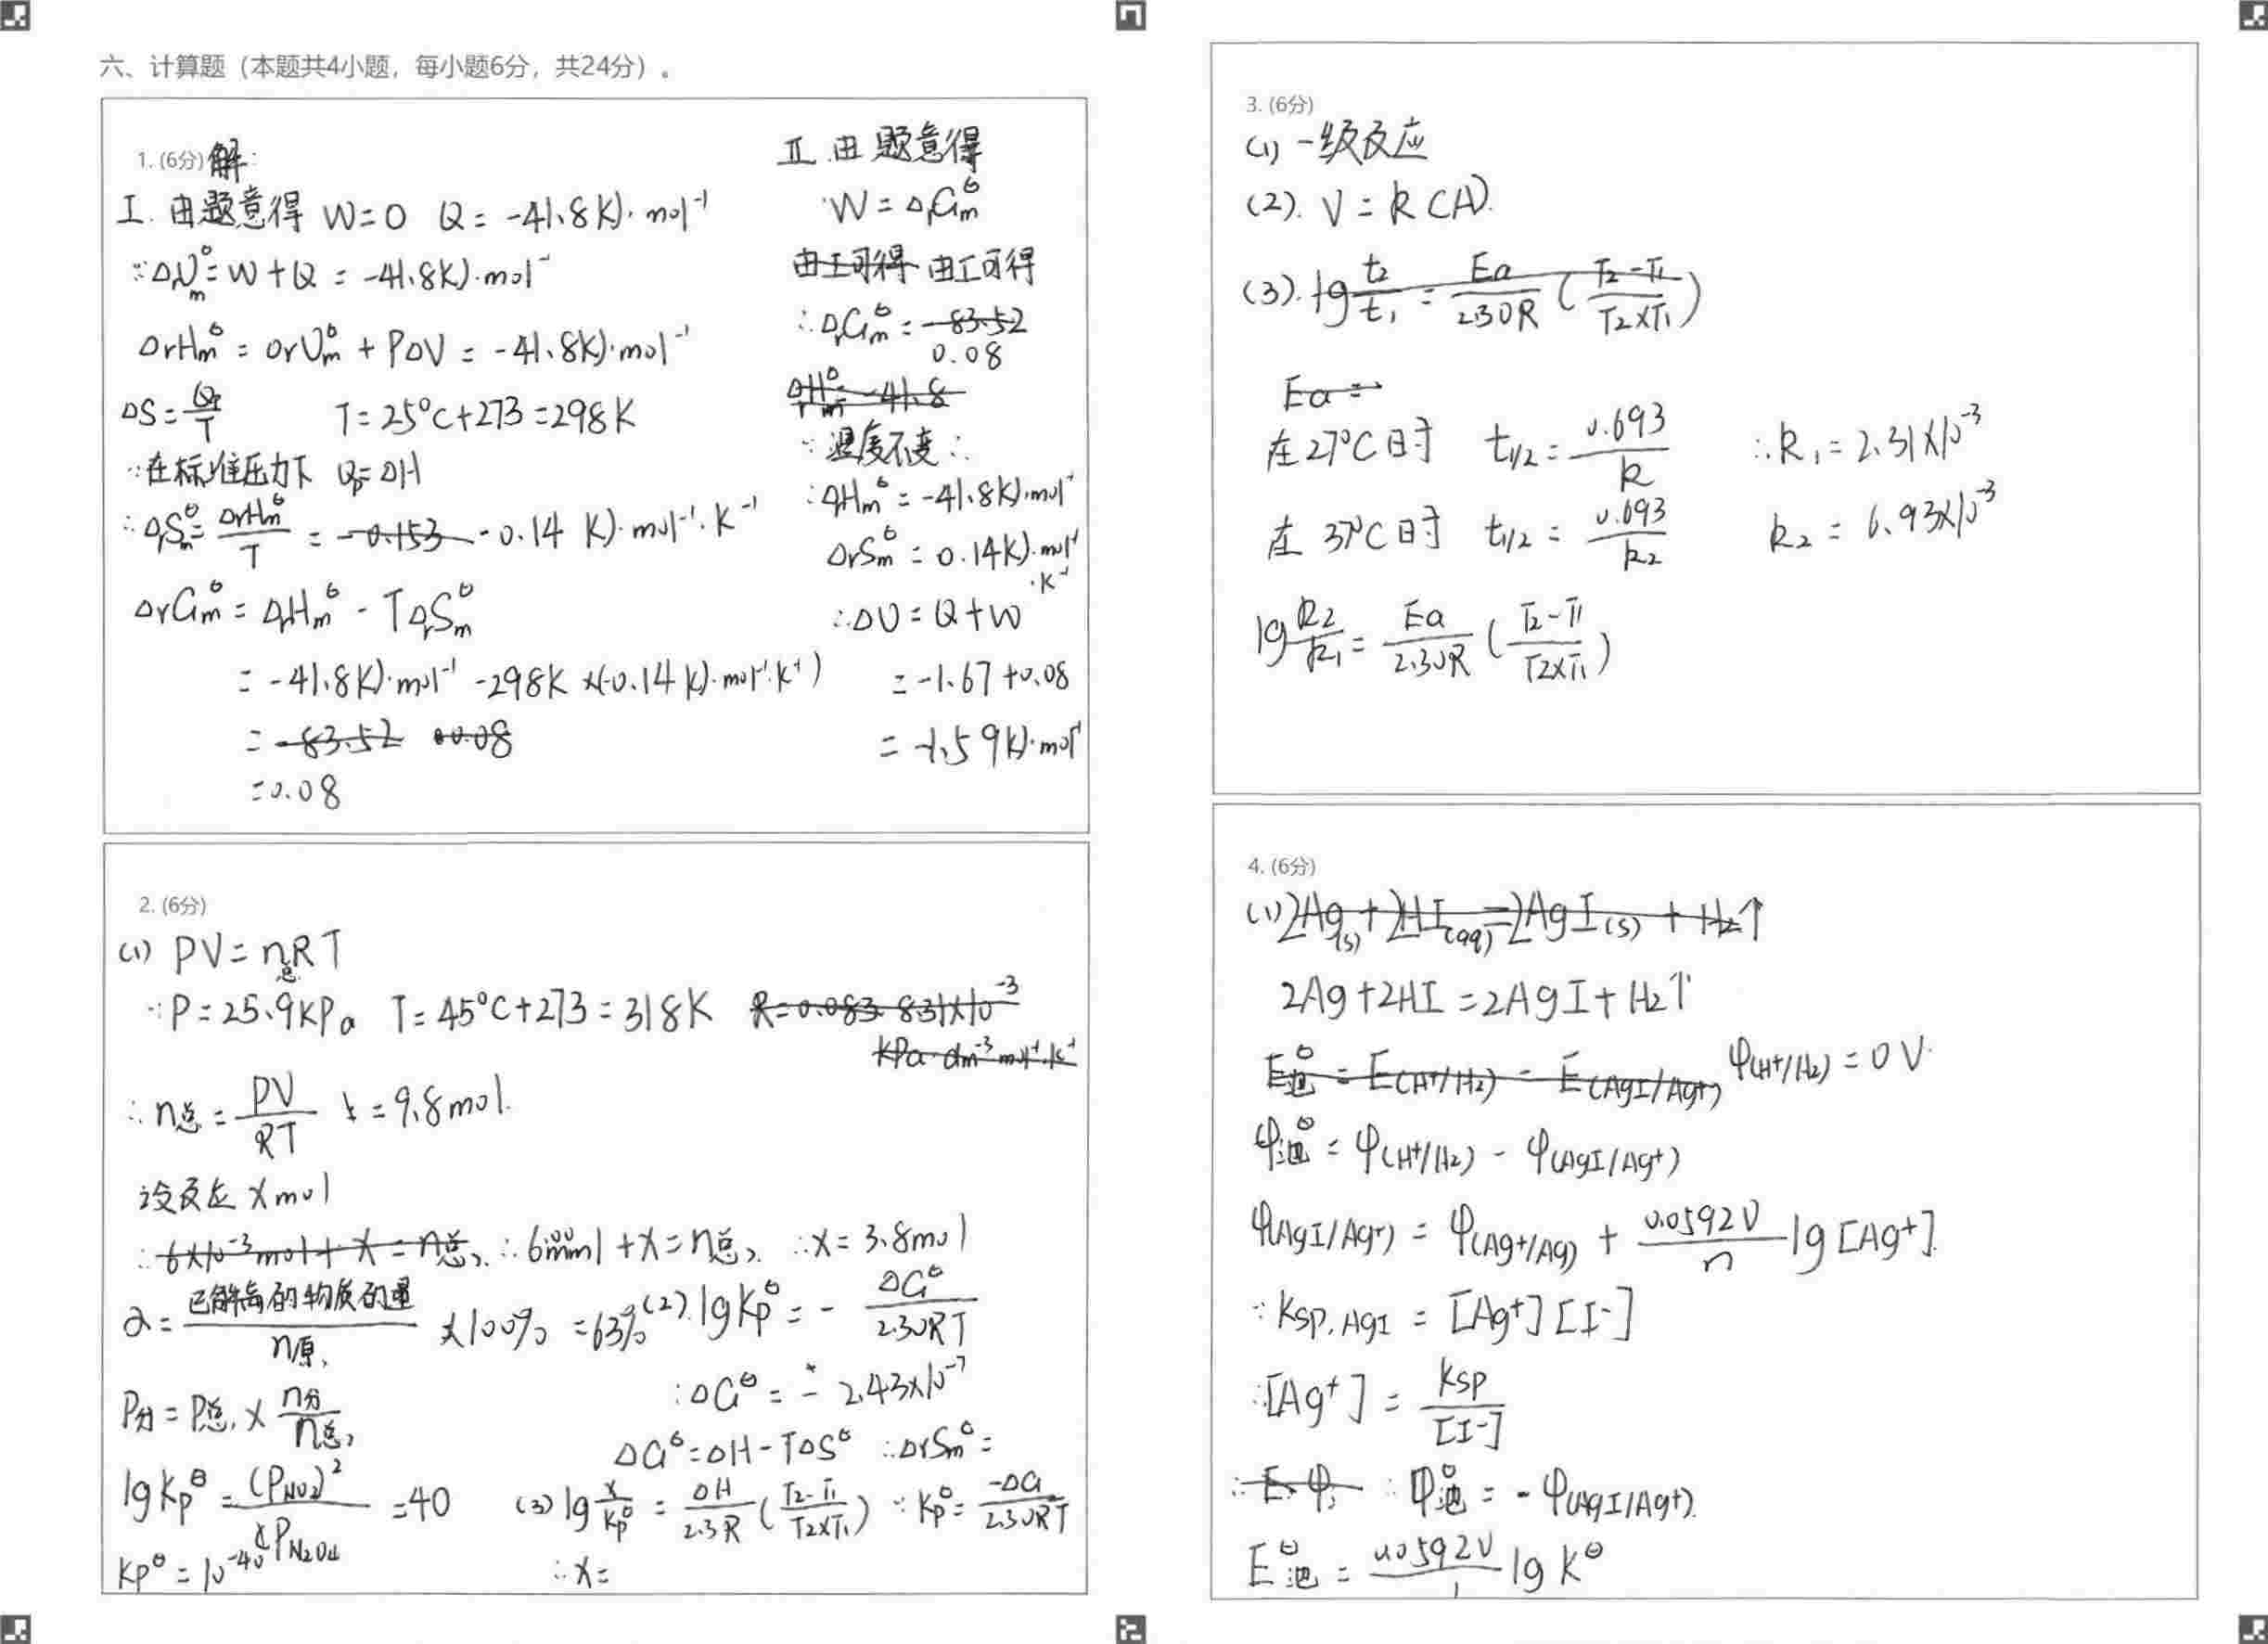 六、计算题（本题共4小题，每小题6分，共24分）。
1. (6分) 解:
I. 由题意得 W=0 Q= -41.8KJ·mol⁻¹
∵ΔU_m^θ=W+Q = -41.8KJ·mol⁻
ΔrHm^θ = ΔrUm^θ + PΔV = -41.8KJ·mol⁻¹
ΔS=Qr/T T=25°C+273=298K
∵在标准压力下 Qp=ΔH
∴ΔrSm^θ=ΔrHm^θ/T = -0.153 -0.14 KJ·mol⁻¹·K⁻¹
ΔrGm^θ = ΔrHm^θ - TΔrSm^θ
= -41.8KJ·mol⁻¹ -298K×(-0.14KJ·mol⁻¹·K⁻¹)
= -83.52 0.08
=0.08
II. 由题意得
W=ΔrGm^θ
由I可得 由I可得
∴ΔrGm^θ = -83.52
0.08
ΔrHm^θ= -41.8
∵温度不变∴
∴ΔrHm^θ = -41.8KJ·mol⁻¹
ΔrSm^θ = 0.14KJ·mol⁻¹
·K⁻¹
∴ΔU=Q+W
= -1.67+0.08
= -1.59KJ·mol⁻¹
2. (6分)
(1) PV=n总RT
∵P=25.9KPa T=45°C+273=318K R=0.083 8.31×10⁻³
KPa·dm⁻³mol⁻¹·K⁻¹
∴n总=PV/RT =9.8mol.
设反应 xmol
∴6×10⁻³mol+x=n总, ∴6mol+x=n总, ∴x=3.8mol
α=已解离的物质的量/n原 ×100% =63%
P分=P总×n分/n总
lgKp^θ=(P_NO2)²/P_N2O4=40
Kp^θ=10⁻⁴⁰
(2). lgKp^θ= - ΔG^θ/2.30RT
∴ΔG^θ= - 2.43×10⁻⁷
ΔG^θ=ΔH-TΔS^θ ∴ΔrSm^θ=
(3) lg x/Kp^θ = ΔH/2.3R (T2-T1/T2×T1) ∵Kp^θ= -ΔG/2.30RT
∴x=
3. (6分)
(1) 一级反应
(2). V=k(A).
(3). lg t2/t1 = Ea/2.30R (T2-T1/T2×T1)
Ea=
在27°C时 t1/2=0.693/k ∴k1=2.31×10⁻³
在37°C时 t1/2=0.693/k2 k2=6.93×10⁻³
lg k2/k1=Ea/2.30R (T2-T1/T2×T1)
4. (6分)
(1) 2Ag(s)+2HI(aq)=2AgI(s)+H2↑
2Ag+2HI=2AgI+H2↑
E池^θ=E(H⁺/H2)-E(AgI/Ag⁺) φ(H⁺/H2)=0V.
φ池^θ=φ(H⁺/H2)-φ(AgI/Ag⁺)
φ(AgI/Ag⁺)=φ(Ag⁺/Ag)+0.0592V/n lg[Ag⁺].
∵Ksp,AgI=[Ag⁺][I⁻]
∴[Ag⁺]=Ksp/[I⁻]
∴E φ, ∴φ池^θ= -φ(AgI/Ag⁺).
E池^θ=0.0592V/1 lgK^θ